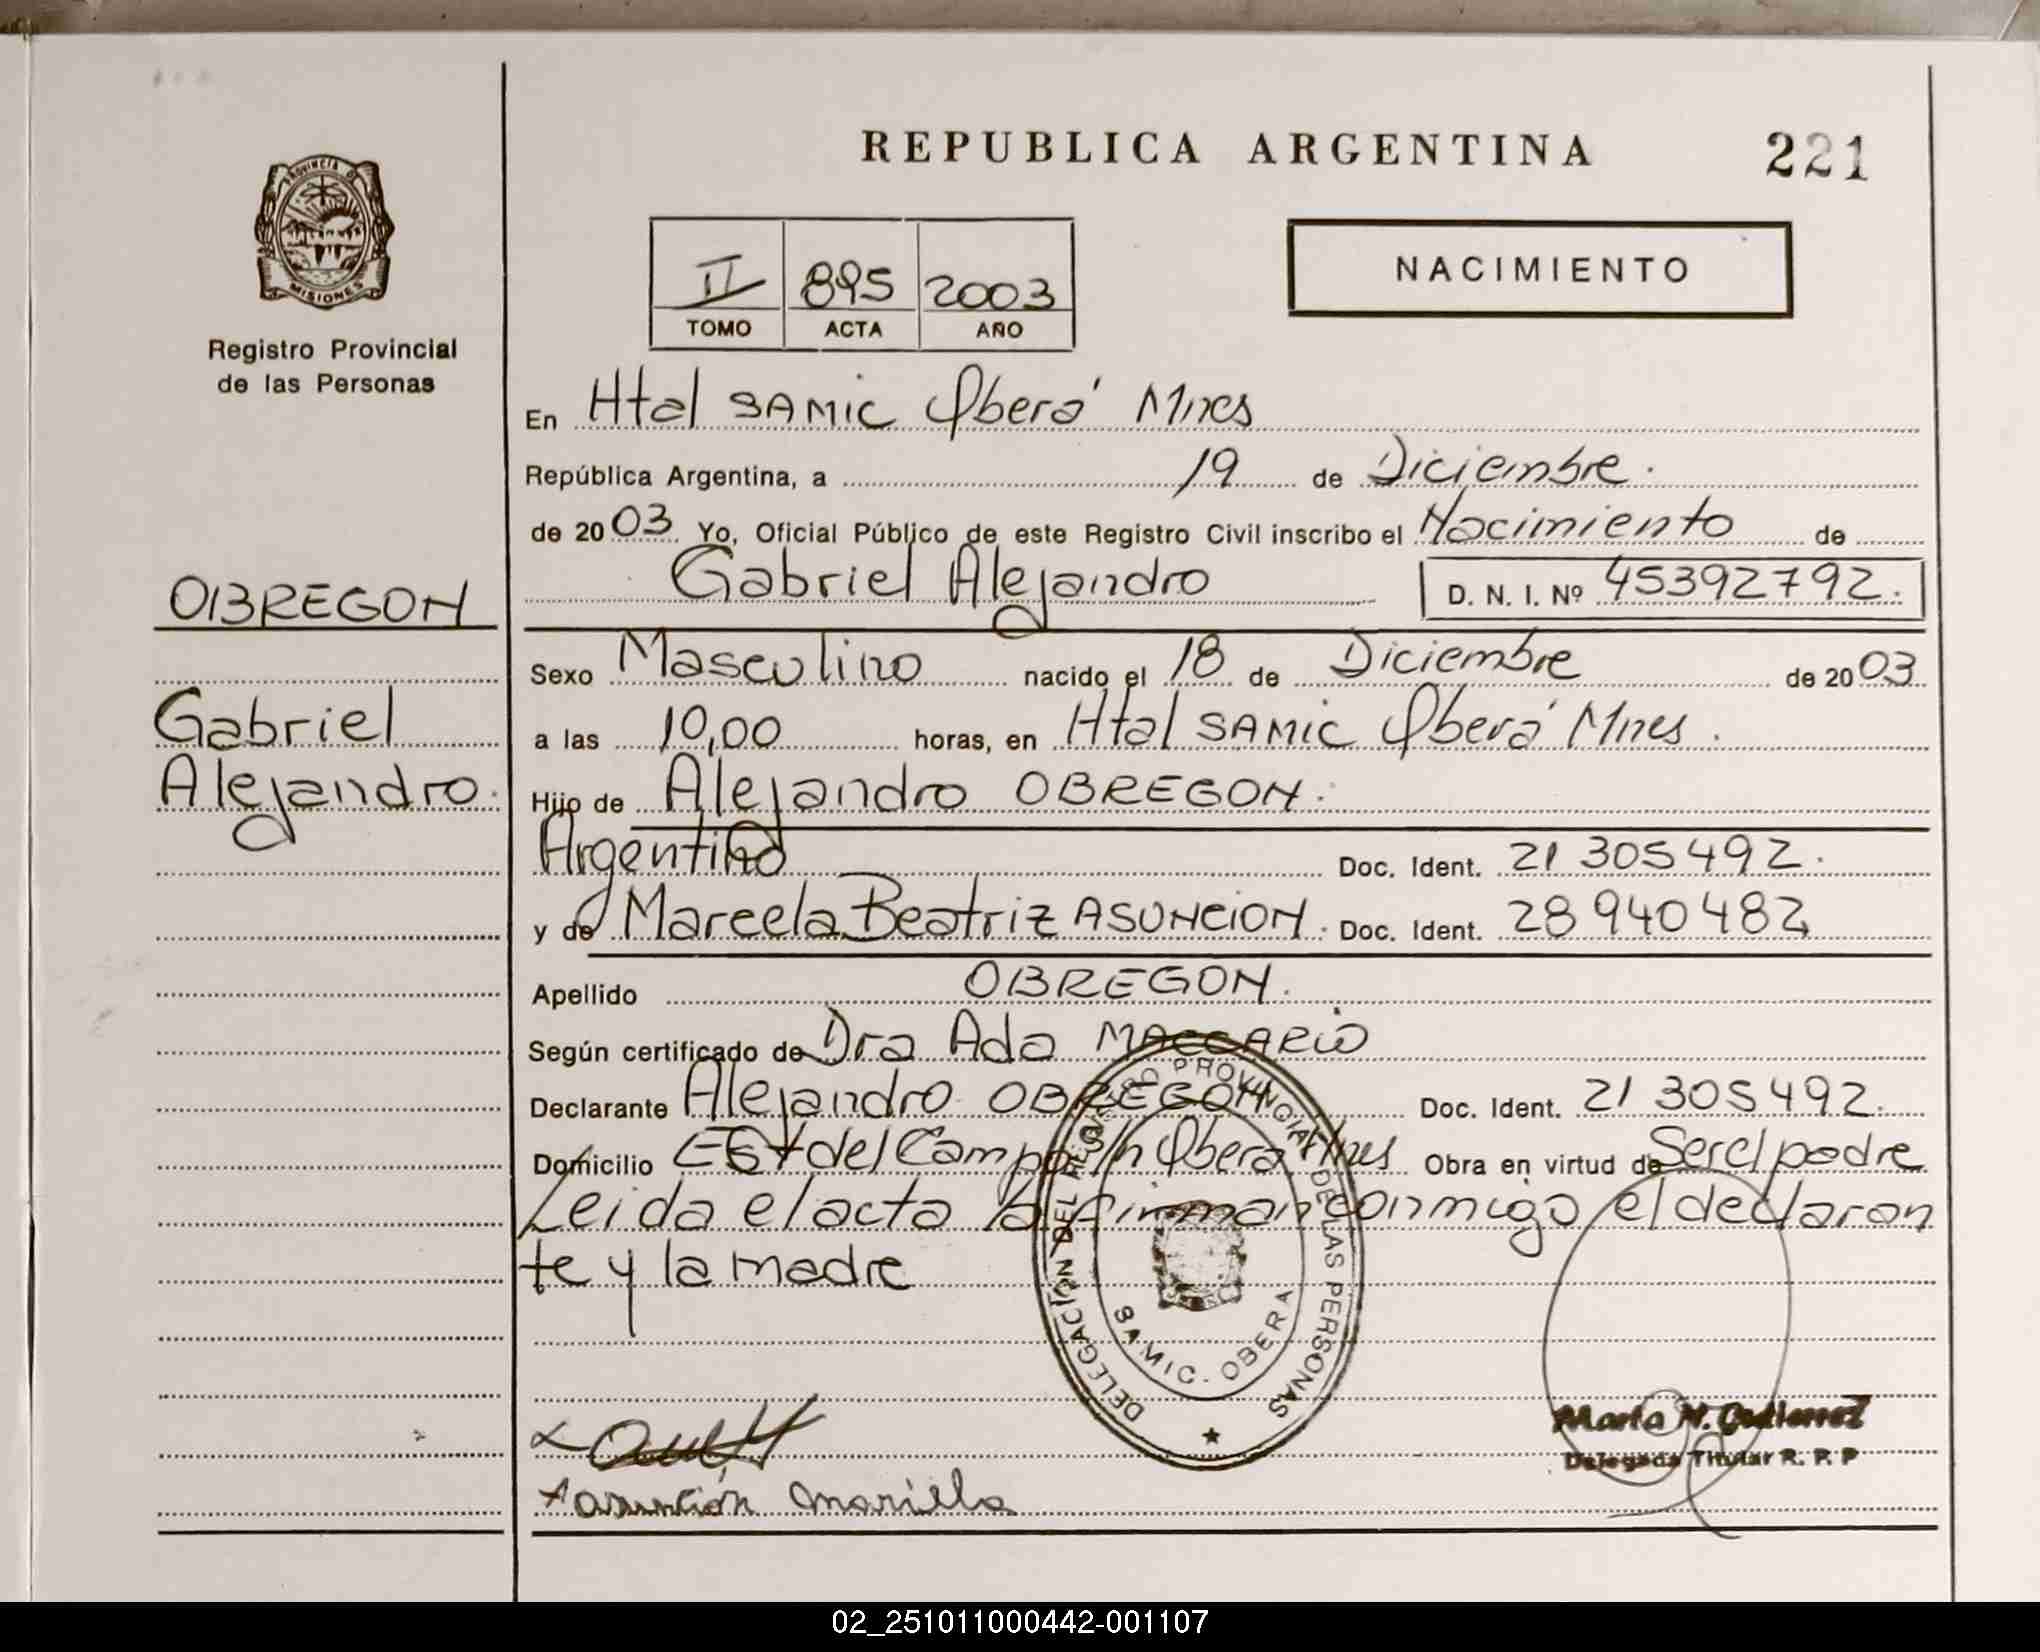 REPUBLICA ARGENTINA
221
PROVINCIA DE
MISIONES
Registro Provincial
de las Personas
II 895 2003
TOMO ACTA AÑO
NACIMIENTO
En Htal SAMIC Oberá Mnes
República Argentina, a 19 de Diciembre.
de 2003 Yo, Oficial Público de este Registro Civil inscribo el Nacimiento de
Gabriel Alejandro D. N. I. Nº 45392792.
OBREGON
Gabriel
Alejandro.
Sexo Masculino nacido el 18 de Diciembre de 2003
a las 10,00 horas, en Htal SAMIC Oberá Mnes.
Hijo de Alejandro OBREGON.
Argentino Doc. Ident. 21 305492.
y de Marcela Beatriz ASUNCION. Doc. Ident. 28 940482
Apellido OBREGON.
Según certificado de Dra Ada MACCARIO
Declarante Alejandro OBREGON Doc. Ident. 21 305492.
Domicilio Est del Campo S/n Oberá Mnes Obra en virtud de Ser el padre
Leida el acta la firman conmigo el declaran
te y la madre
DELEGACION DEL REGISTRO PROVINCIAL DE LAS PERSONAS
SAMIC. OBERA
Marta N. Gutierrez
Delegada Titular R. P. P
Asunción Mariella
02_251011000442-001107